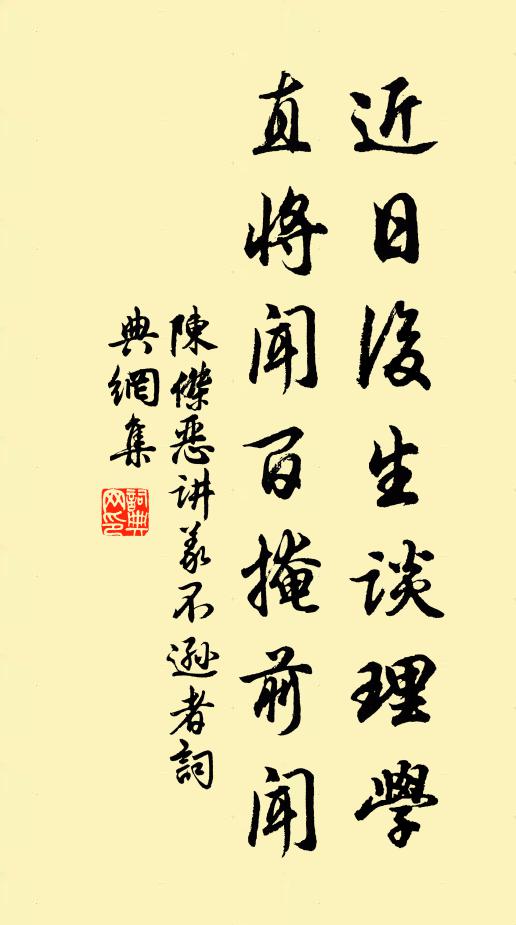 近日後生談理學
直將聞百掩前聞
陳傑惡讲義不遜者詞
典網集
詞典
网印